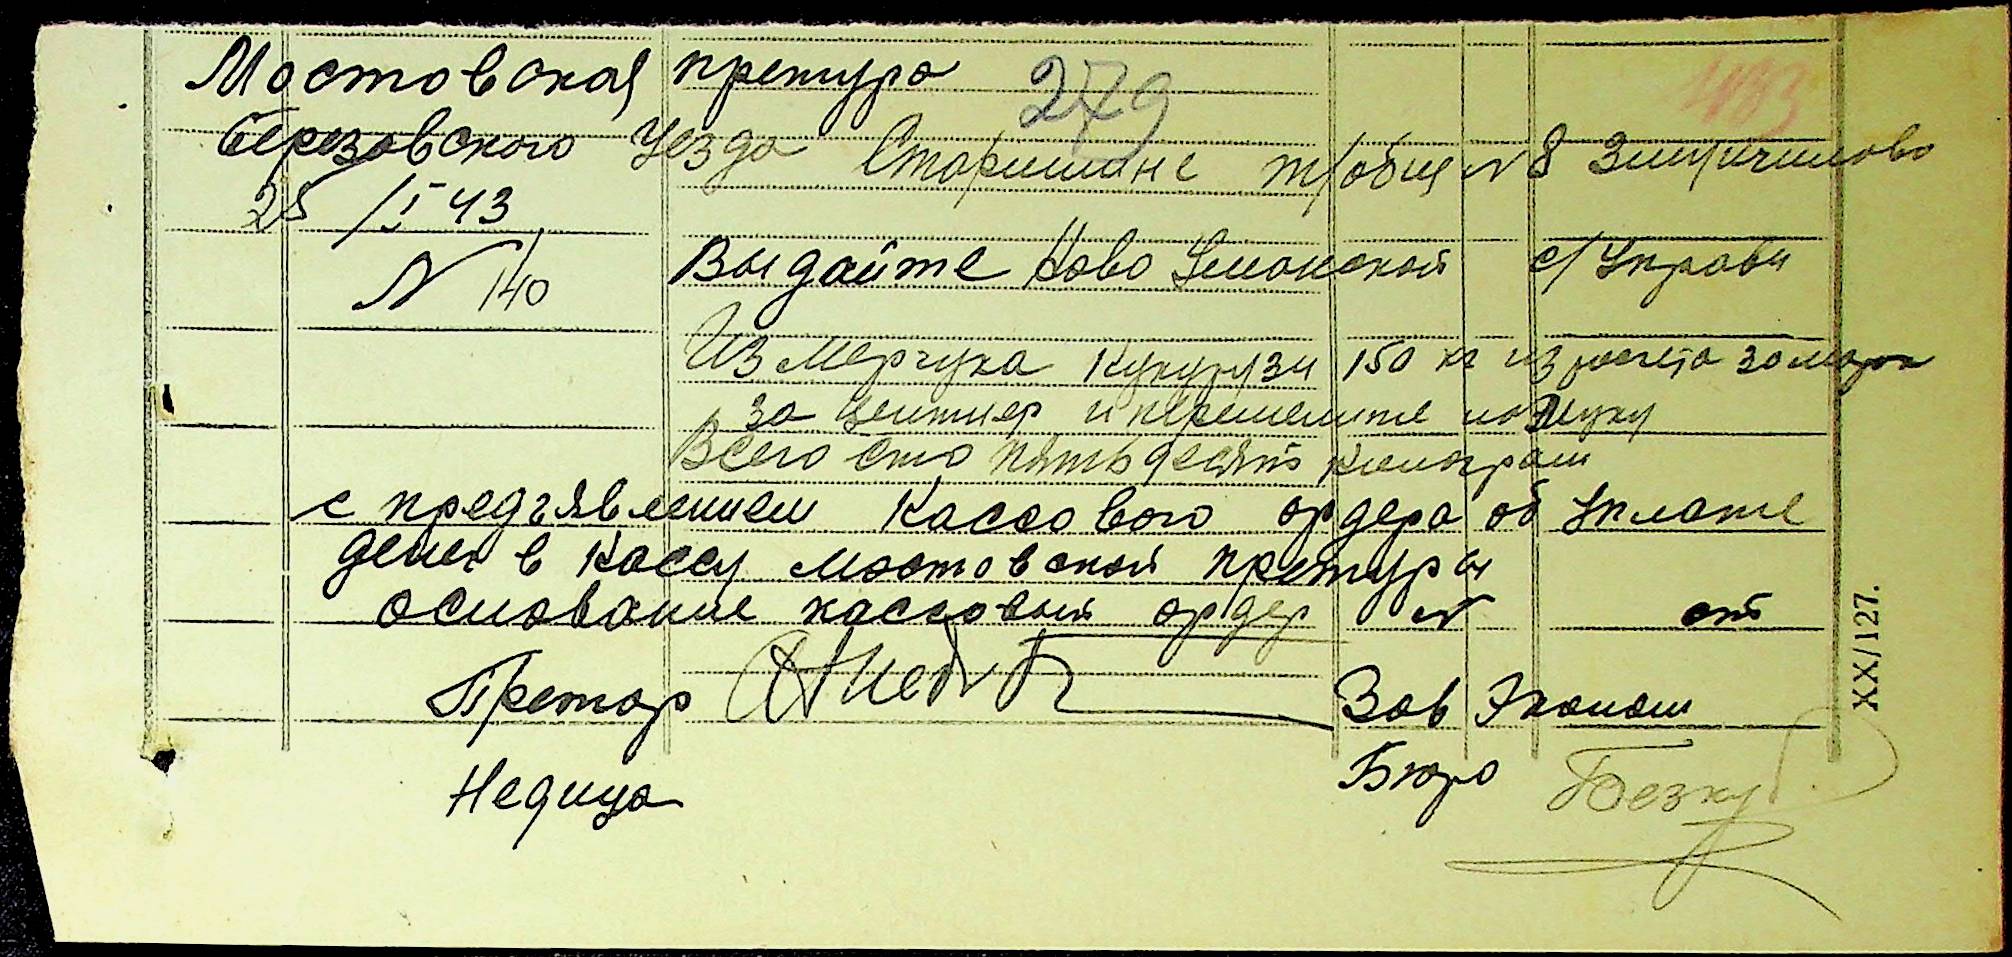 Мостовская претура
279
483
Березовского Уезда Старшине т/общ N 8
25/I 43
N 140
Выдайте Ново Уманской с/Управы
Из Мерчука Кукурузы 150 кг из расчета 30 марок
за центнер и перемелите на муку
Всего сто пятьдесят килограм
с предъявлением Кассового ордера об Уплате
денег в Кассу мостовской претуры
основание кассовый ордер N от
Претор Зав Эконом
Недица Бюро
XX/127.